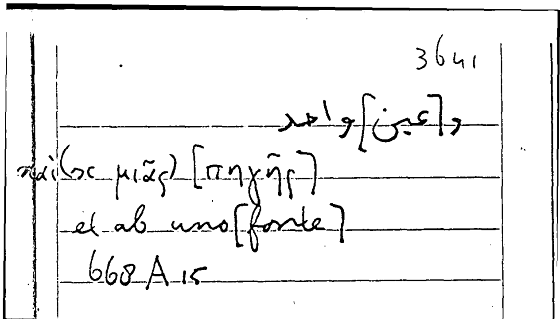 3641
و[عين] واحد
καὶ (ἐκ μιᾶς) [πηγῆς]
et ab uno [fonte]
668 A 15